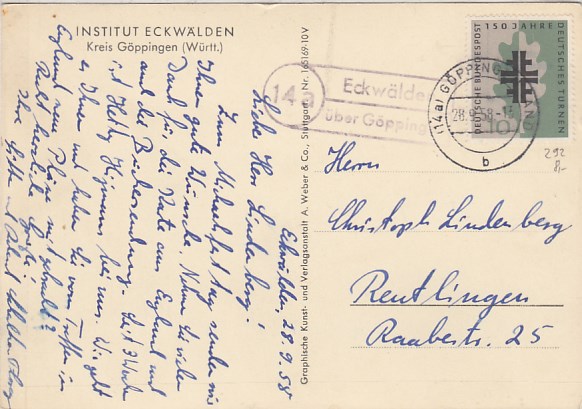 INSTITUT ECKWÄLDEN
Kreis Göppingen (Württ.)
Eckwälden, 28.9.58
Liebe Herr Lindenberg!
Zum Michaelsfest tag senden wir
Ihnen gute Wünsche. Nehmen Sie vielen
Dank für die Karte aus England und
und die Büchersendung. Seit 3 Wochen
ist Herbig bei uns. Wie geht
es Ihnen und haben Sie vom Treffen in
England neue Pläne mit gebracht?
Recht herzliche Grüße
Ihre
Graphische Kunst- und Verlagsanstalt A. Weber & Co., Stuttgart, Nr. 1/5169.10 V
14a
Eckwälden
über Göppingen
(14a) GÖPPINGEN
28.9.58
b
150 JAHRE
DEUTSCHES TURNEN
DEUTSCHE BUNDESPOST
10
292
8,-
Herrn
Christoph Lindenberg
Reutlingen
Raabestr. 25